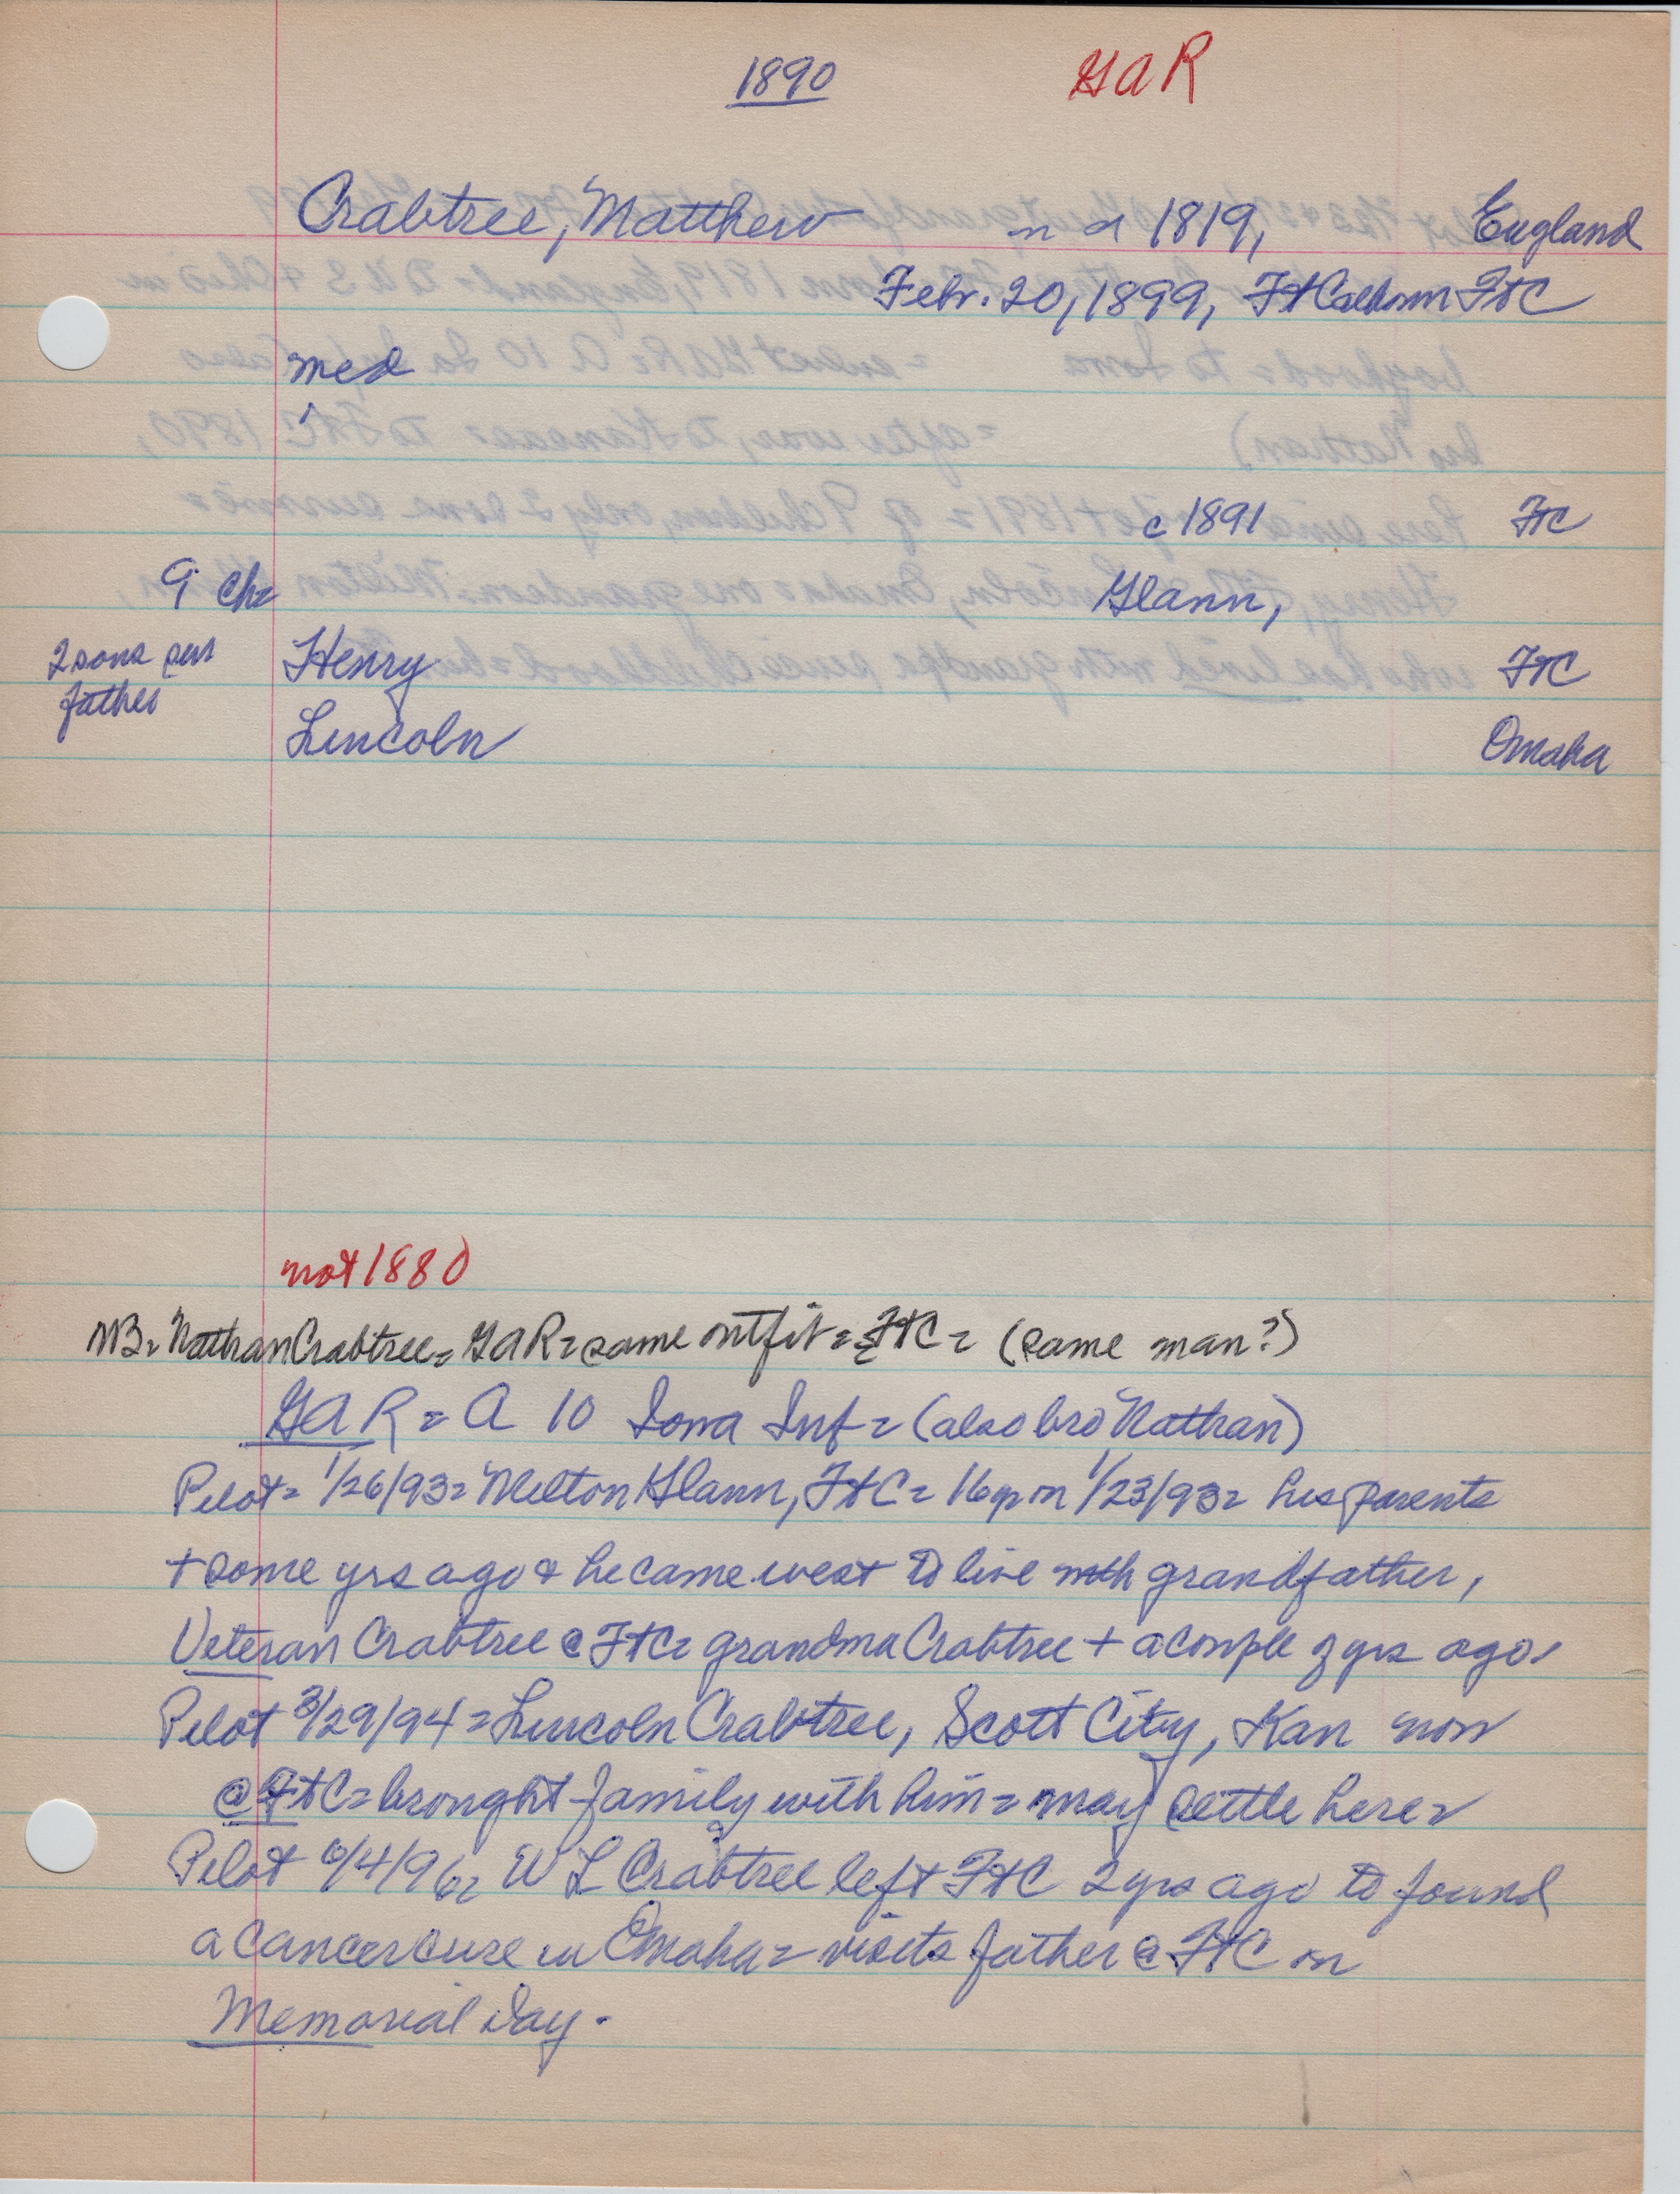 1890 GAR
Crabtree, Matthew n a 1819, England
Febr. 20, 1899, Ft Calhoun FtC
med
c 1891 FtC
9 ch= Glann,
2 sons per Henry FtC
father
Lincoln Omaha
not 1880
NB= Nathan Crabtree= GAR= same outfit= FtC= (same man?)
GAR= A 10 Iowa Inf= (also bro Nathan)
Pilot= 1/26/93= Milton Glann, FtC= 16 yr on 1/23/93= his parents
+ some yrs ago & he came west to live with grandfather,
Veteran Crabtree @ FtC= grandma Crabtree + a couple of yrs ago=
Pilot 3/29/94= Lincoln Crabtree, Scott City, Kan now
@ FtC= brought family with him= may settle here=
Pilot 6/4/96= W L Crabtree left FtC 2 yrs ago to found
a cancer cure in Omaha= visits father @ FtC on
Memorial Day.